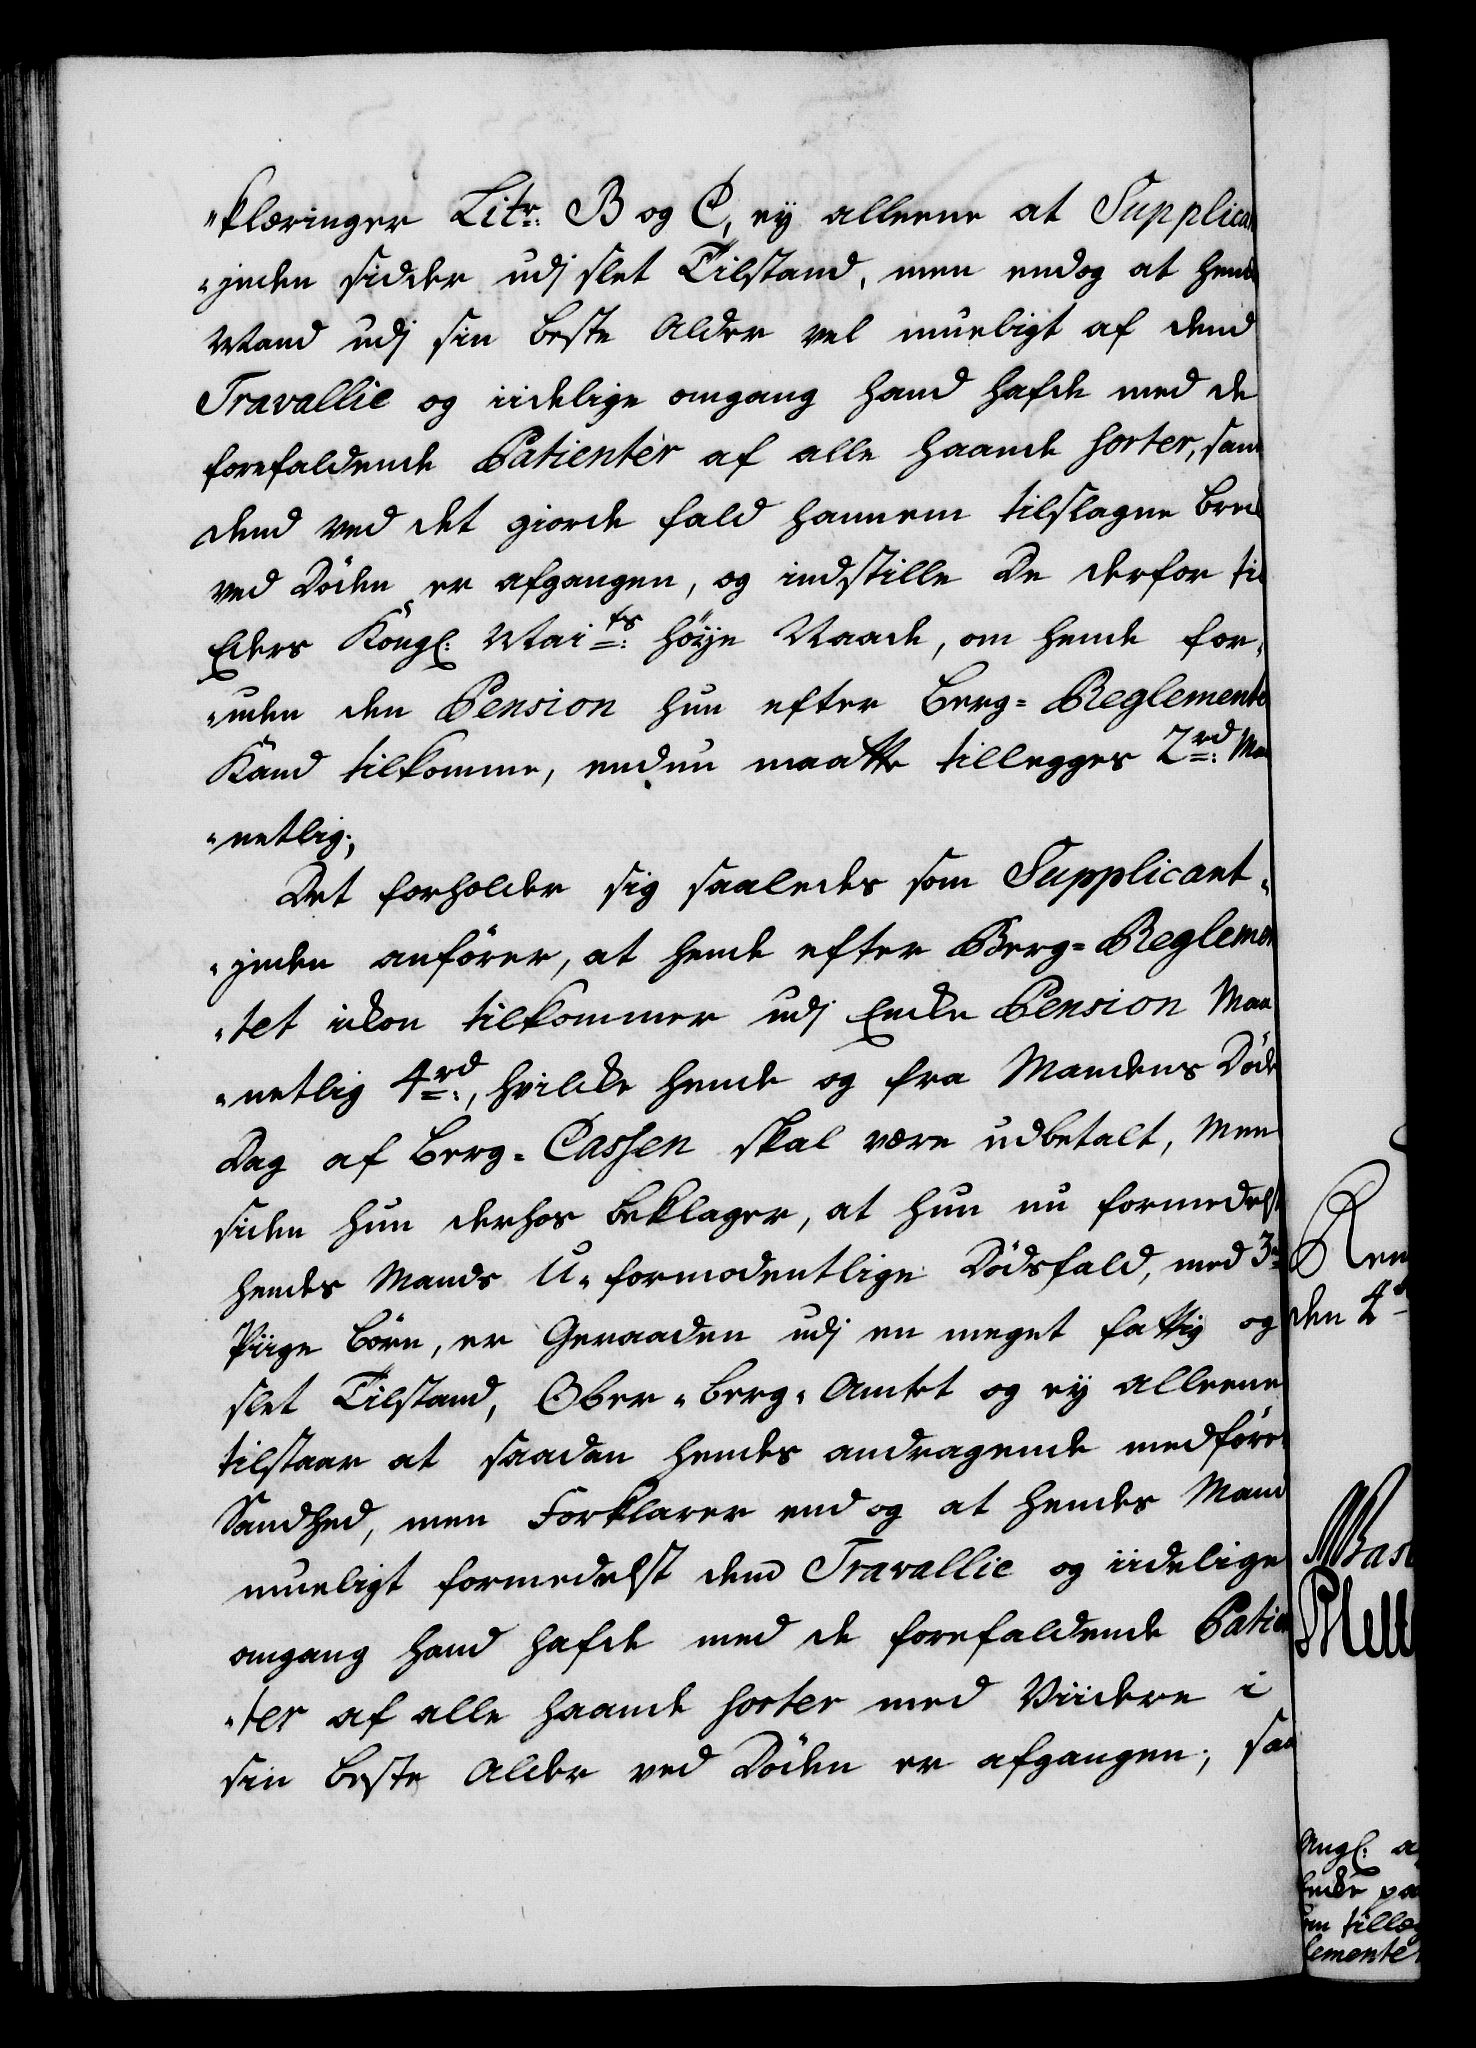 "klæringer Litr: B og C, ey alleene at Supplica
"inden sidder udj slet Tilstand, men endog at hend
Mand udj sin beste Alder vel mueligt af dend
Travallie og iidelige omgang hand hafde med de
forefaldende Patienter af alle haande sorter, sam
dend ved det giorde fald hannem tilslagne bræk
ved Döden er afgangen, og indstille De derfor til
Eders Kongl: Maits: höye Naade, om hende for„
„uden den Pension hun efter Berg= Reglemente
Kand tilkomme, endnu maatte tillegges 2rd: Maa
„netlig;
Det forholder sig saaledes som Supplicant„
„inden anförer, at hende efter Berg= Reglemen
„tet ickon tilkommer udj Encke Pension Maa
„netlig 4rd:, hvilcke hende og fra Mandens Döds
Dag af Berg= Cassen skal være udbetalt, Men
siden hun derhos beklager, at hun nu formedelst
hendes Mands U„formodentlige Dödsfald, med 3de
Piige börn, er Geraaden udj en meget fattig og
slet Tilstand, Ober„Berg„Amtet og ey alleene
tilstaar at saadan hendes andragende medföre
Sandhed, men Forklarer end og at hendes Mand
mueligt formedelst dend Travallie og iidelige
omgang hand hafde med de forefaldende Patien
„ter af alle haande sorter med Viidere i
sin beste Alder ved Döden er afgangen; saa
Ren
den 4
Kongl: a
Encke pa
tillæg
lemente